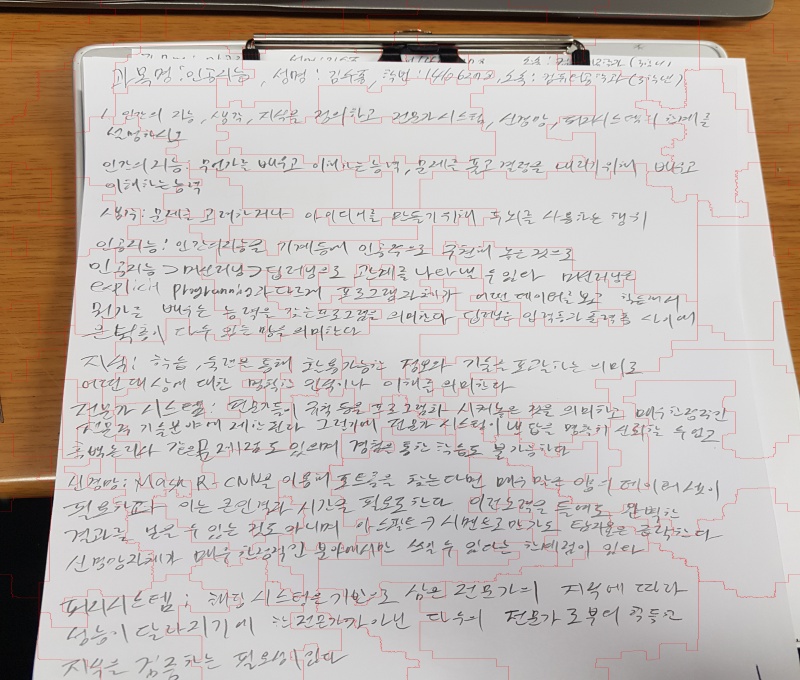 과목명:인공지능, 성명:김, 학번:, 소속: (3학년)
1. 인간의 지능, 생각, 지식을 정의하고 전문가시스템, 신경망, 퍼지시스템의 한계를
설명하시오
인간의 지능: 무언가를 배우고 이해하는 능력, 문제를 풀고 결정을 내리기 위해 배우고
이해하는 능력
생각: 문제를 고려하거나 아이디어를 만들기 위해 두뇌를 사용하는 행위
인공지능: 인간의 지능을 기계등에 인공적으로 구현해 놓은 것으로
인공지능 > 머신러닝 > 딥러닝으로 관계를 나타낼 수 있다 머신러닝은
explicit programming과 다르게 프로그램 자체가 어떤 데이터를 보고 학습해서
뭔가를 배우는 능력을 갖는 프로그램을 의미한다 딥러닝은 입력층과 출력층 사이에
은닉층이 다수 있는 망을 의미한다
지식: 학습, 훈련을 통해 활용가능한 정보와 기술을 포괄하는 의미로
어떤 대상에 대한 명확한 인식이나 이해를 의미한다
전문가 시스템: 전문가들의 규칙 등을 프로그램화 시켜놓은 것을 의미하고 매우 한정적인
전문적 기술분야에 제한된다 그렇기에 전문가 시스템이 낸 답을 명확히 신뢰할 수 없고
흑백논리와 같은 문제점도 있으며 경험을 통한 학습도 불가능하다
신경망: Mask R-CNN을 이용해 포트홀을 찾는다면 매우 많은 양의 데이터셋이
필요하다 이는 큰 인력과 시간을 필요로 한다 이런 노력을 들여도 완벽한
결과를 낳을 수 있는 것도 아니며 아스팔트 → 시멘트로만 가도 탐지율은 급락한다
신경망 자체가 매우 한정적인 분야에서만 쓰일 수 있다는 한계점이 있다
퍼지시스템: 해당 시스템은 기반으로 삼은 전문가의 지식에 따라
성능이 달라지기에 한 전문가가 아닌 다수의 전문가로부터 획득한
지식을 검증하는 필요성이 있다